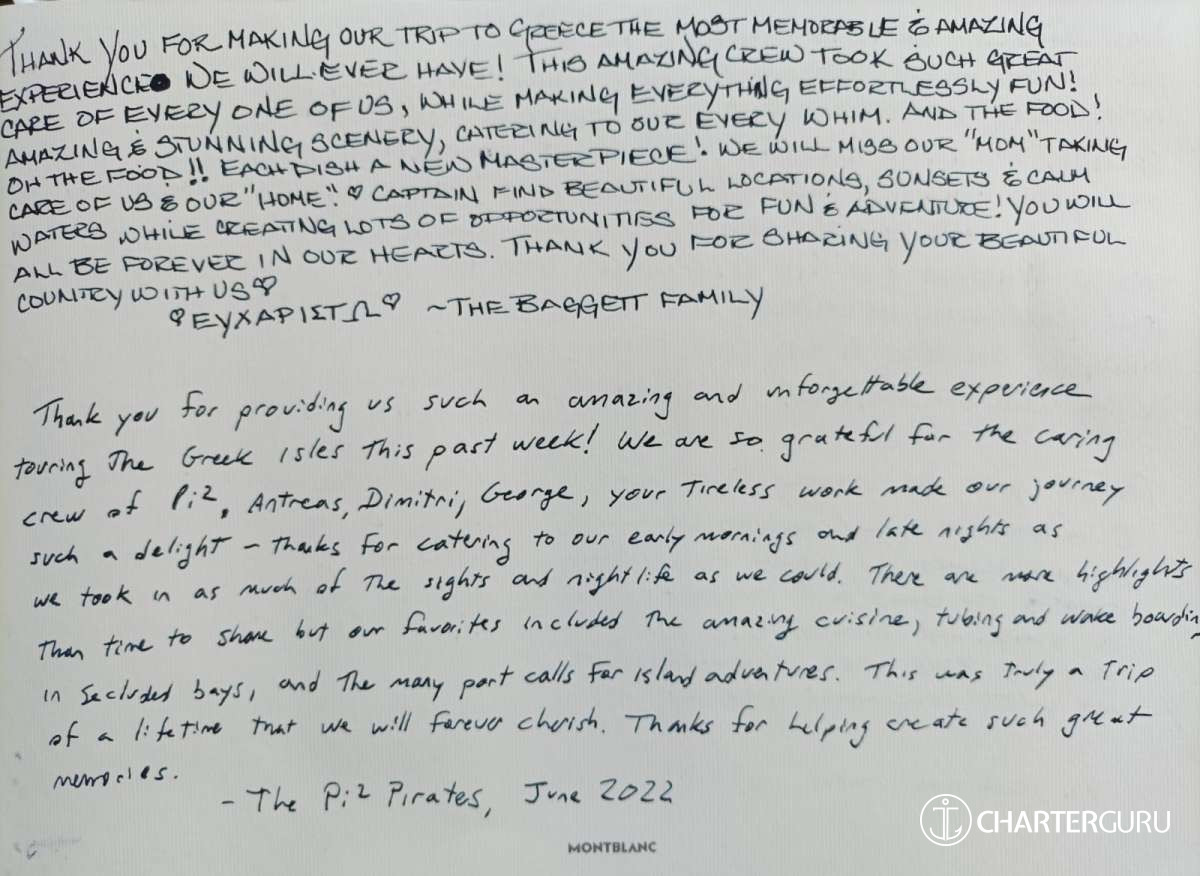 THANK YOU FOR MAKING OUR TRIP TO GREECE THE MOST MEMORABLE & AMAZING
EXPERIENCE WE WILL EVER HAVE! THIS AMAZING CREW TOOK SUCH GREAT
CARE OF EVERY ONE OF US, WHILE MAKING EVERYTHING EFFORTLESSLY FUN!
AMAZING & STUNNING SCENERY, CATERING TO OUR EVERY WHIM. AND THE FOOD!
OH THE FOOD!! EACH DISH A NEW MASTERPIECE! WE WILL MISS OUR "MOM" TAKING
CARE OF US & OUR "HOME". ♡ CAPTAIN FIND BEAUTIFUL LOCATIONS, SUNSETS & CALM
WATERS WHILE CREATING LOTS OF OPPORTUNITIES FOR FUN & ADVENTURE! YOU WILL
ALL BE FOREVER IN OUR HEARTS. THANK YOU FOR SHARING YOUR BEAUTIFUL
COUNTRY WITH US ♡
♡ ΕΥΧΑΡΙΣΤΩ ♡ ~THE BAGGETT FAMILY
Thank you for providing us such an amazing and unforgettable experience
touring The Greek isles this past week! We are so grateful for the caring
crew of Pi², Antreas, Dimitri, George, your tireless work made our journey
such a delight - thanks for catering to our early mornings and late nights as
we took in as much of the sights and nightlife as we could. There are more highlights
than time to share but our favorites included the amazing cuisine, tubing and wake boardin
in secluded bays, and the many port calls for island adventures. This was truly a trip
of a lifetime that we will forever cherish. Thanks for helping create such great
memories.
- The Pi² Pirates, June 2022
CHARTERGURU
MONTBLANC